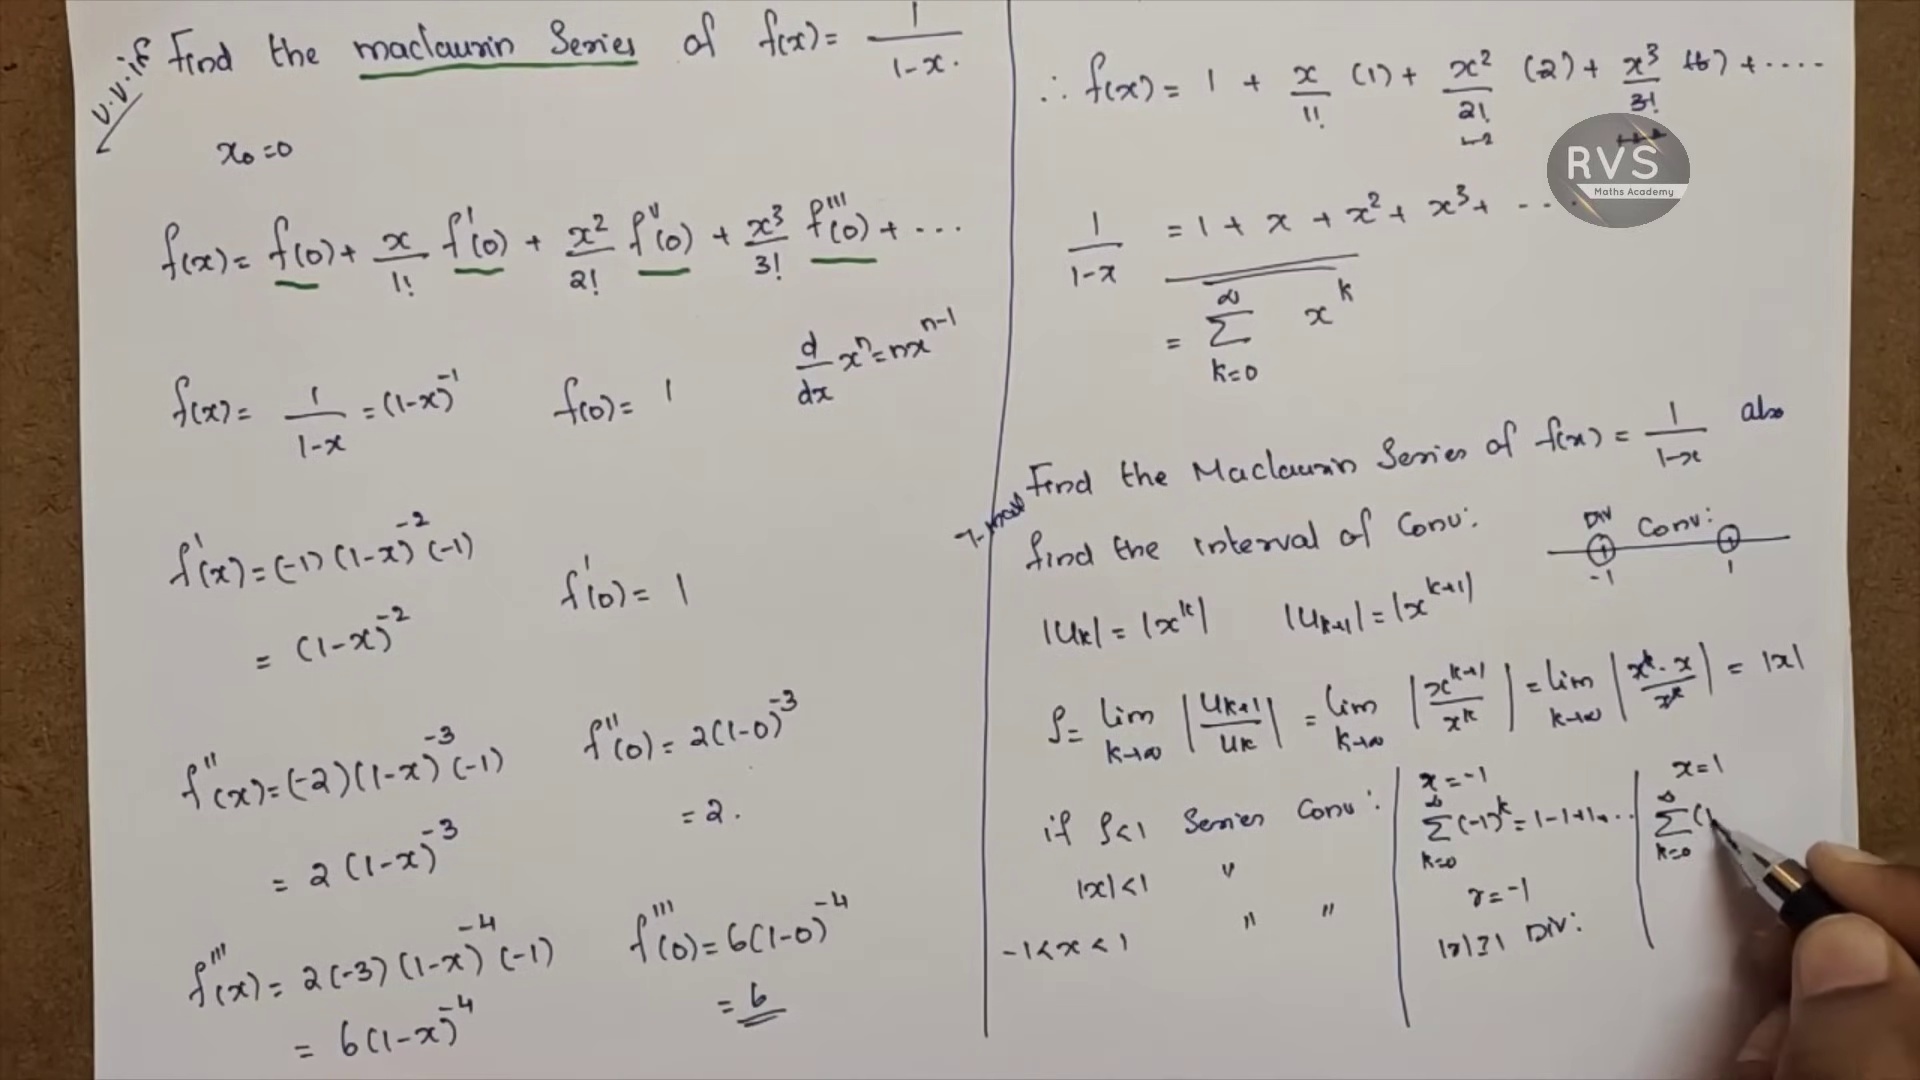 V.V.if
Find the maclaurin Series of f(x) = 1/(1-x).
x₀=0
f(x) = f(0) + x/1! f'(0) + x²/2! f''(0) + x³/3! f'''(0) + ...
d/dx xⁿ = nxⁿ⁻¹
f(x) = 1/(1-x) = (1-x)⁻¹ f(0) = 1
f'(x) = (-1)(1-x)⁻²(-1) f'(0) = 1
= (1-x)⁻²
f''(x) = (-2)(1-x)⁻³(-1) f''(0) = 2(1-0)⁻³
= 2(1-x)⁻³ = 2.
f'''(x) = 2(-3)(1-x)⁻⁴(-1) f'''(0) = 6(1-0)⁻⁴
= 6(1-x)⁻⁴ = 6
∴ f(x) = 1 + x/1! (1) + x²/2! (2) + x³/3! (6) + ....
RVS
Maths Academy
1/(1-x) = 1 + x + x² + x³ + ...
= ∑ₖ₌₀^∞ xᵏ
Find the Maclaurin Series of f(x) = 1/(1-x) also
find the interval of Conv:
Div Conv:
-1 1
|Uₖ| = |xᵏ| |Uₖ₊₁| = |xᵏ⁺¹|
ρ = lim k→∞ |Uₖ₊₁/Uₖ| = lim k→∞ |xᵏ⁺¹/xᵏ| = lim k→∞ |xᵏ·x/xᵏ| = |x|
if ρ<1 Series Conv:
|x|<1 "
-1<x<1 " "
x=-1
∑ₖ₌₀^∞ (-1)ᵏ = 1-1+1...
r=-1
|r|≥1 Div:
x=1
∑ₖ₌₀^∞ (1